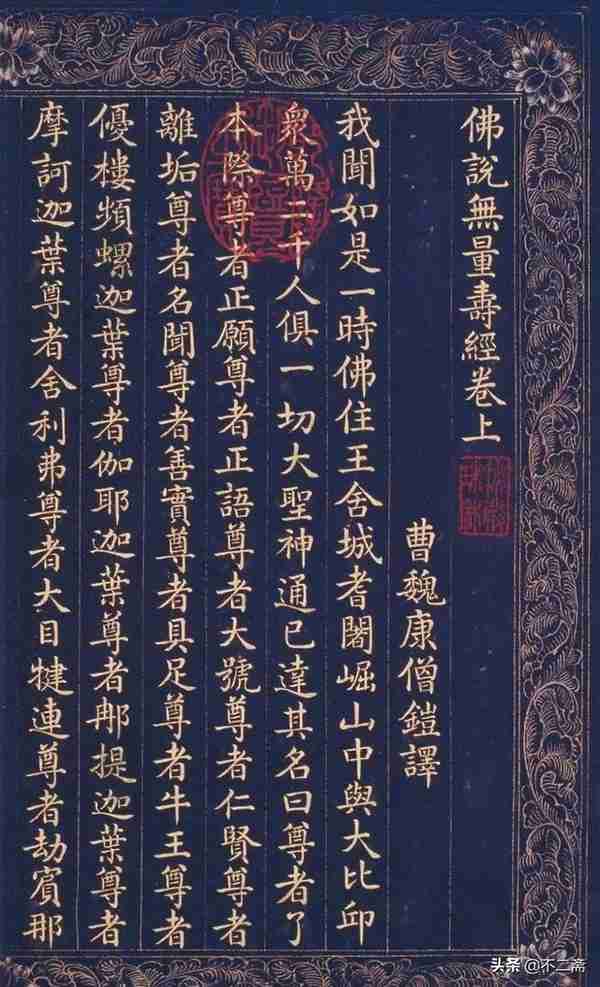 佛說無量壽經卷上
曹魏康僧鎧譯
我聞如是一時佛住王舍城耆闍崛山中與大比邱
衆萬二千人俱一切大聖神通已達其名曰尊者了
本際尊者正願尊者正語尊者大號尊者仁賢尊者
離垢尊者名聞尊者善實尊者具足尊者牛王尊者
優樓頻螺迦葉尊者伽耶迦葉尊者那提迦葉尊者
摩訶迦葉尊者舍利弗尊者大目犍連尊者劫賓那
头条 @不二斋